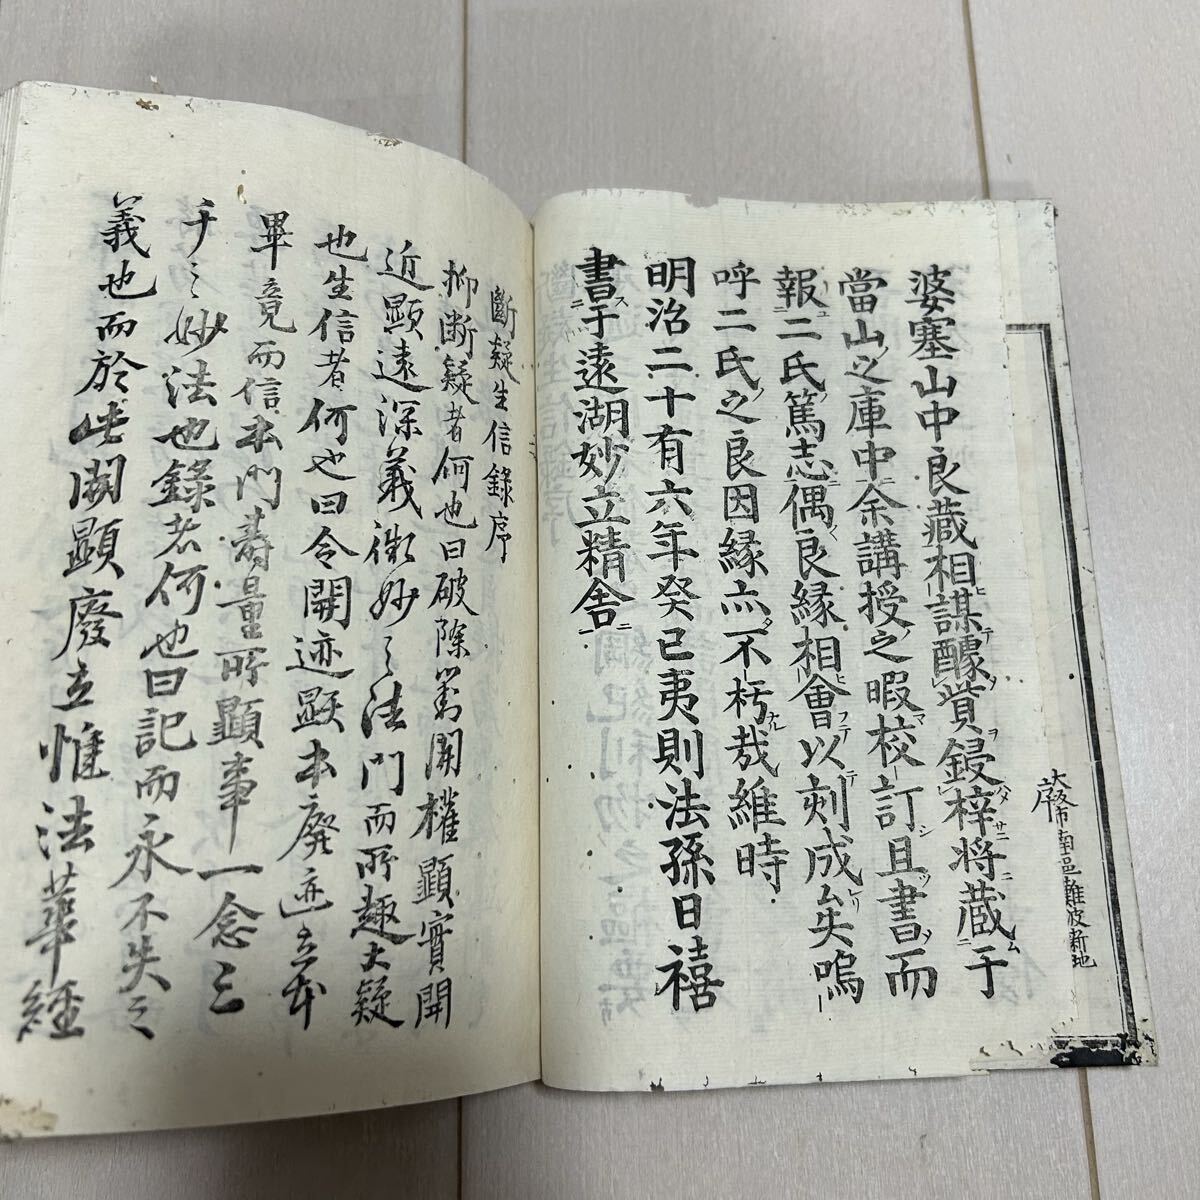 婆塞山中良蔵相謀醵貲鋟梓将蔵于
當山之庫中余講授之暇校訂且書而
報二氏篤志偶良縁相會以刻成矣嗚
呼二氏之良因縁亦不朽哉維時
明治二十有六年癸巳夷則法孫日禧
書于遠湖妙立精舎
南區難波新地
斷疑生信錄序
抑斷疑者何也曰破除咒開權顯實開
近顯遠深義微妙之法門而所趣大疑
也生信者何也曰令開迹顕本廃迹立本
畢竟而信本門壽量所顕事一念三
千之妙法也錄者何也曰記而永不失之
義也而於此開顯廢立惟法華經